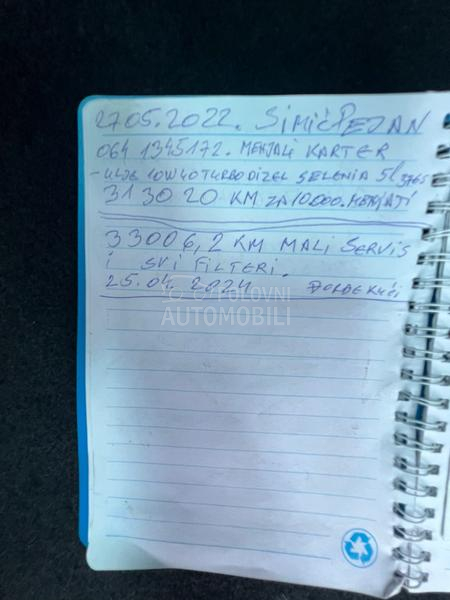 27.05.2022. SIMIĆ PEJAN
064 1345172. MENJALI KARTER
- ULJE 10W40 TURBO DIZEL SELENIA 5l
313020 KM ZA 10.000. MENJATI
33006,2 KM MALI SERVIS
I SVI FILTERI.
25.04.2024
POLOVNI
AUTOMOBILI